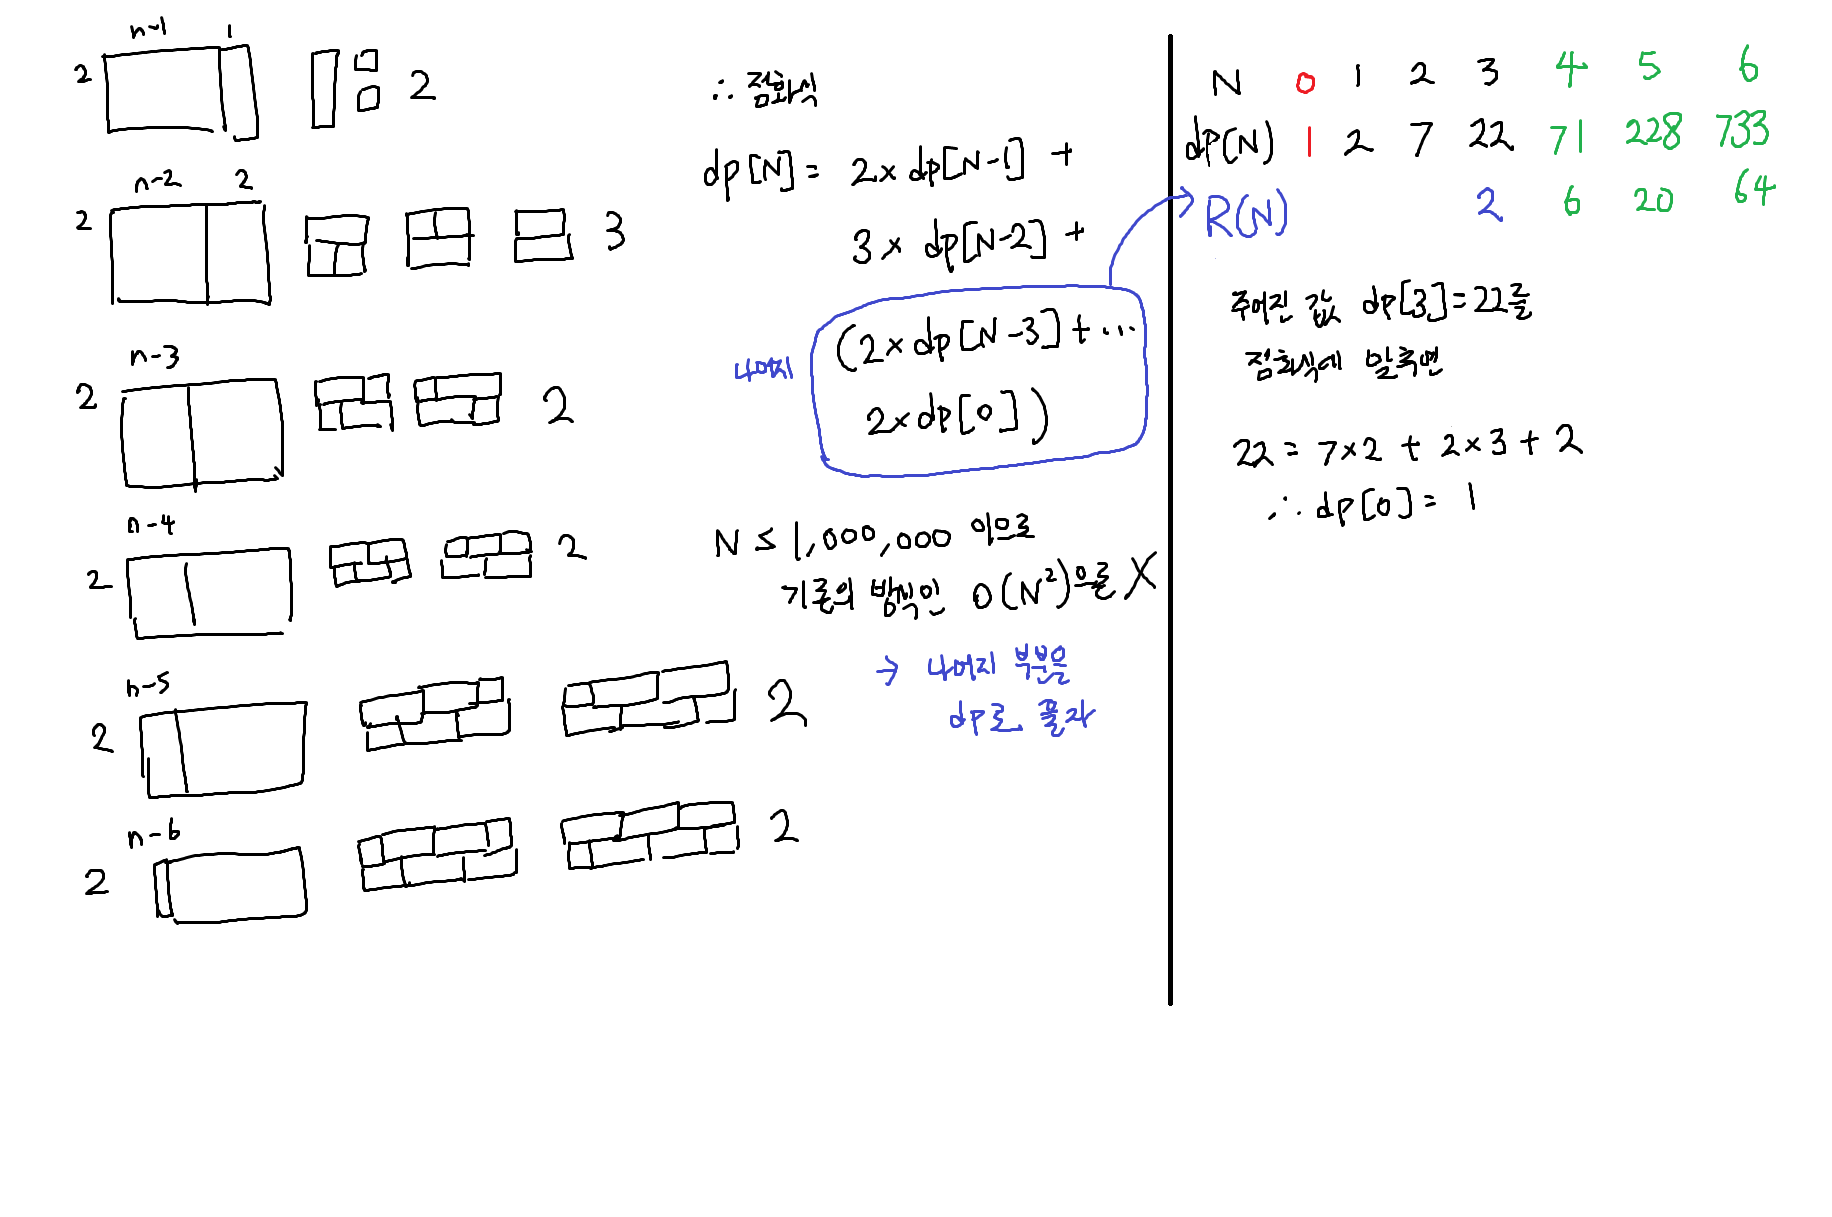 n-1 1
2 2
n-2 2
2 3
n-3
2 2
n-4
2 2
n-5
2 2
n-6
2 2
∴ 점화식
dp[N] = 2× dp[N-1] +
3 × dp[N-2] +
나머지 (2×dp[N-3]+…
2×dp[0])
N ≤ 1,000,000 이므로
기존의 방식인 O(N²)으론 X
→ 나머지 부분을
dp로 풀자
N 0 1 2 3 4 5 6
dp(N) 1 2 7 22 71 228 733
R(N) 2 6 20 64
주어진 값 dp[3]=22를
점화식에 맞추면
22 = 7×2 + 2×3 + 2
∴ dp[0] = 1